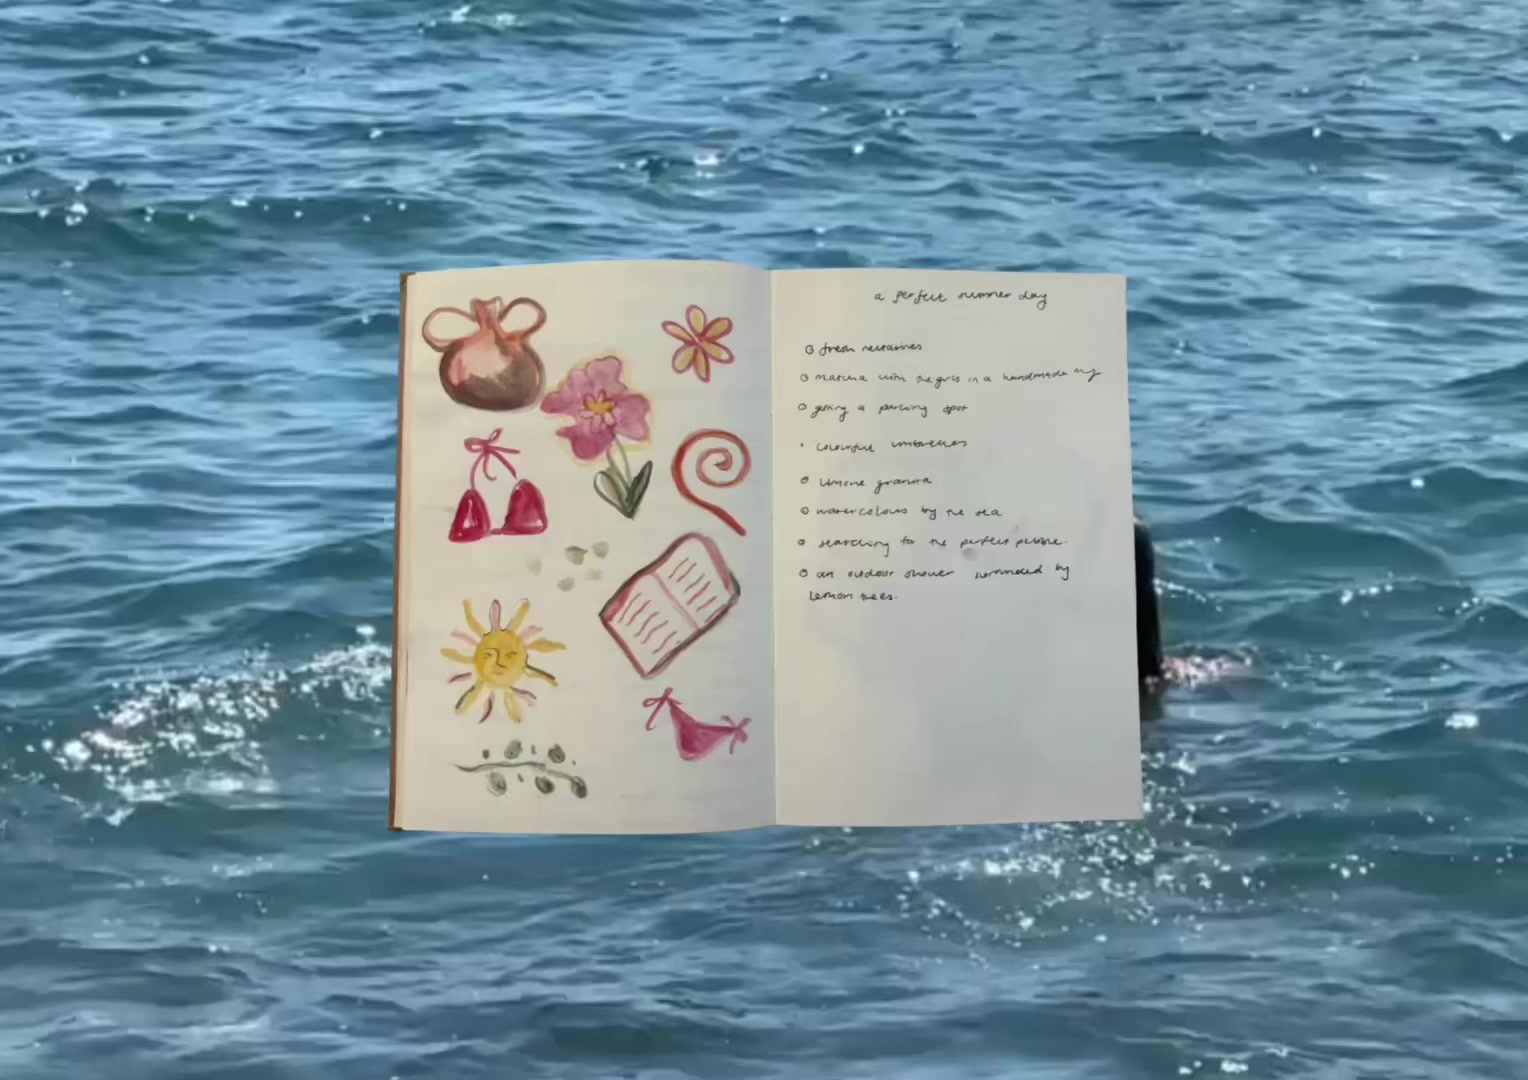 a perfect summer day
fresh nectarines
matcha with the girls in a handmade mug
getting a parking spot
colourful umbrellas
limone granita
watercolours by the sea
searching for the perfect pebble.
an outdoor shower surrounded by
lemon trees.